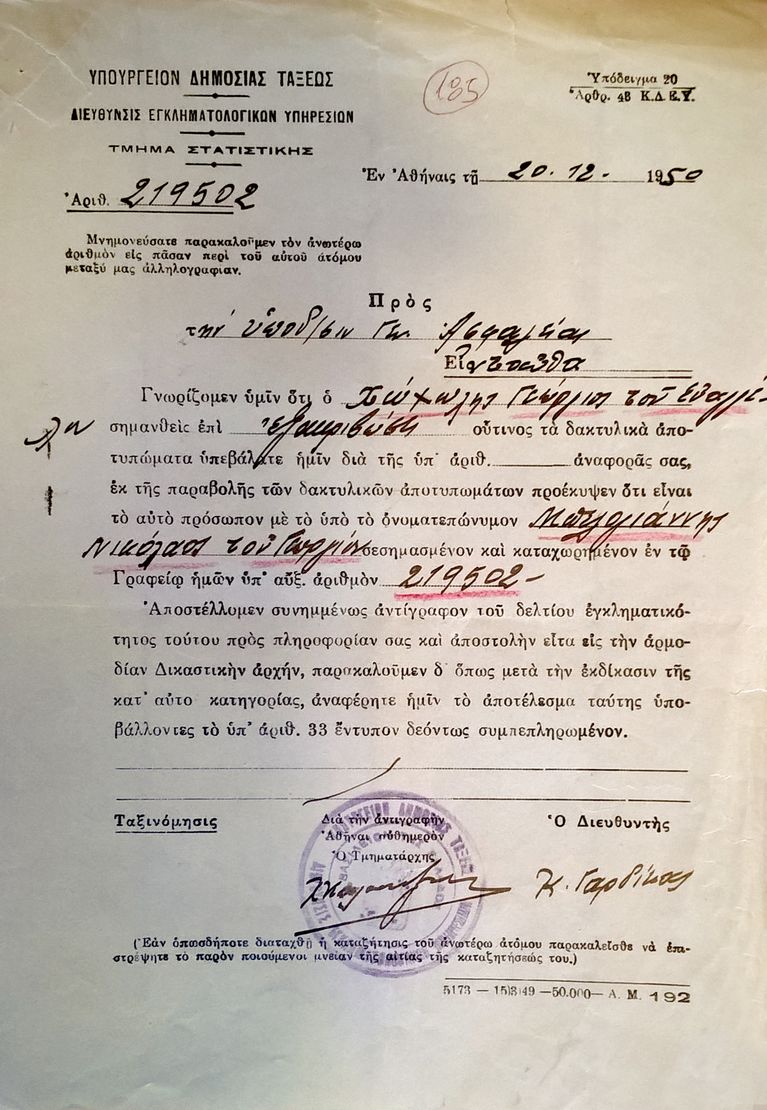 ΥΠΟΥΡΓΕΙΟΝ ΔΗΜΟΣΙΑΣ ΤΑΞΕΩΣ
ΔΙΕΥΘΥΝΣΙΣ ΕΓΚΛΗΜΑΤΟΛΟΓΙΚΩΝ ΥΠΗΡΕΣΙΩΝ
ΤΜΗΜΑ ΣΤΑΤΙΣΤΙΚΗΣ
Ἀριθ. 219502
185
Ὑπόδειγμα 20
Ἄρθρ. 48 Κ.Δ.Ε.Υ.
Ἐν Ἀθήναις τῇ 20.12. 1950
Μνημονεύσατε παρακαλοῦμεν τὸν ἀνωτέρω
ἀριθμὸν εἰς πᾶσαν περὶ τοῦ αὐτοῦ ἀτόμου
μεταξύ μας ἀλληλογραφίαν.
Πρὸς
τὴν ὑποδ/σιν Γεν. Ἀσφαλείας
Ἐνταῦθα
Γνωρίζομεν ὑμῖν ὅτι ὁ Γεώργιος τοῦ Εὐαγγέ-
λου
σημανθεὶς ἐπὶ ἐξακριβώσει οὗτινος τὰ δακτυλικὰ ἀπο-
τυπώματα ὑπεβάλατε ἡμῖν διὰ τῆς ὑπ' ἀριθ. ἀναφορᾶς σας,
ἐκ τῆς παραβολῆς τῶν δακτυλικῶν ἀποτυπωμάτων προέκυψεν ὅτι εἶναι
τὸ αὐτὸ πρόσωπον μὲ τὸ ὑπὸ τὸ ὀνοματεπώνυμον Μπελογιάννης
Νικόλαος τοῦ Γεωργίου σεσημασμένον καὶ καταχωρημένον ἐν τῷ
Γραφείῳ ἡμῶν ὑπ' αὔξ. ἀριθμὸν 219502-
Ἀποστέλλομεν συνημμένως ἀντίγραφον τοῦ δελτίου ἐγκληματικό-
τητος τούτου πρὸς πληροφορίαν σας καὶ ἀποστολὴν εἶτα εἰς τὴν ἁρμο-
δίαν Δικαστικὴν ἀρχήν, παρακαλοῦμεν δ' ὅπως μετὰ τὴν ἐκδίκασιν τῆς
κατ' αὐτο κατηγορίας, ἀναφέρητε ἡμῖν τὸ ἀποτέλεσμα ταύτης ὑπο-
βάλλοντες τὸ ὑπ' ἀριθ. 33 ἔντυπον δεόντως συμπεπληρωμένον.
Ταξινόμησις
Διὰ τὴν ἀντιγραφὴν
Ἀθῆναι αὐθημερὸν
Ὁ Τμηματάρχης
Ὁ Διευθυντὴς
Κ. Γαρδίκας
(Ἐὰν ὁπωσδήποτε διαταχθῇ ἡ καταζήτησις τοῦ ἀνωτέρω ἀτόμου παρακαλεῖσθε νὰ ἐπι-
στρέψητε τὸ παρὸν ποιούμενοι μνείαν τῆς αἰτίας τῆς καταζητήσεώς του.)
5173 — 15)3)49 —50.000— Α. Μ. 192